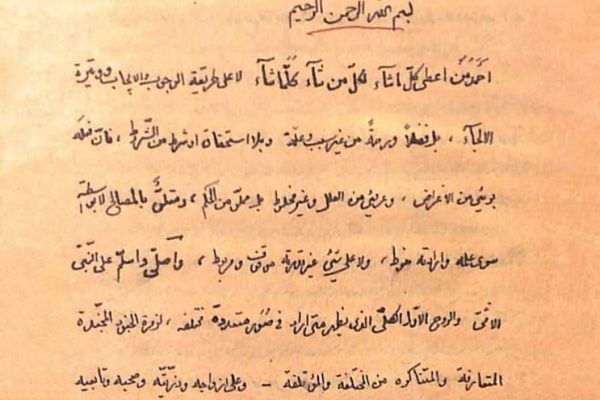 بسم الله الرحمن الرحيم
أحمد من اعطى كلّ ماشآء لكلّ من شآء كلّما شآء لا على طريقة الوجوب والايجاب ووتيرة
الالجآء ، بل فضلاً ورحمةً من غير سبب وعلّة وبلا استحقاق او شرط من الشّروط ، فانّ فعله
بريئ من الأغراض ، وعريّ من العلل وغير مخلوط بل مملوّ من الحكم ، ومتلقّ بالمصالح لا بواسطة
سوى علمه وارادته منوط ، ولا على شيئ غير قدرته موقوف ومربوط ، وأصلّي واسلّم على النّبيّ
الامّيّ والروح الأوّل الكلّيّ الذى يظهر متى اراد فى صُوَر متعدّدة مختلفه ، لزمرة الجنود المجنّدة
المتعارفة والمتناكره من المختلفة والمؤتلفة - وعلى ازواجه وذرّيّته وصحبه وتابعيه